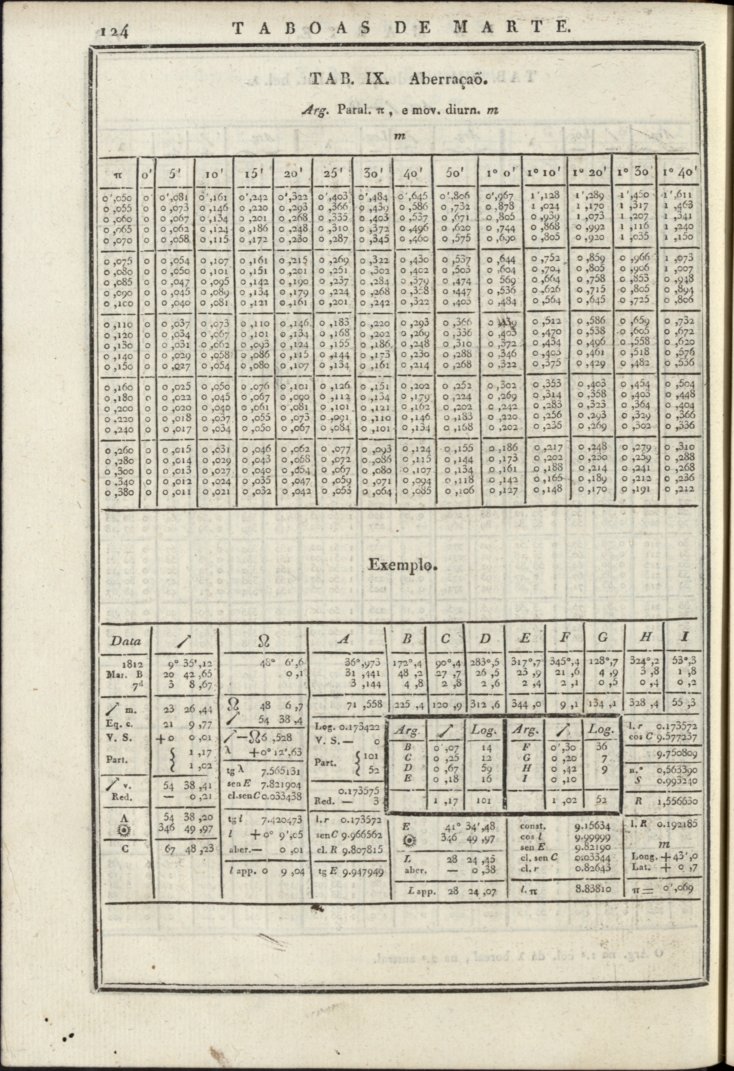 124 TABOAS DE MARTE.
TAB. IX. Aberraçaõ.
Arg. Paral. π , e mov. diurn. m
m
π 0' 5' 10' 15' 20' 25' 30' 40' 50' 1° 0' 1° 10' 1° 20' 1° 30 1° 40'
0',050 0 0',081 0',161 0',242 0',322 0',403 0',484 0',645 0',806 0',967 1',128 1',289 1',450 1',611
0 ,055 0 0 ,073 0 ,146 0 ,220 0 ,293 0 ,366 0 ,439 0 ,586 0 ,732 0 ,878 1 ,024 1 ,170 1 ,317 1 ,463
0 ,060 0 0 ,067 0 ,134 0 ,201 0 ,268 0 ,335 0 ,403 0 ,537 0 ,671 0 ,805 0 ,939 1 ,073 1 ,207 1 ,341
0 ,065 0 0 ,062 0 ,124 0 ,186 0 ,248 0 ,310 0 ,372 0 ,496 0 ,620 0 ,744 0 ,868 0 ,992 1 ,116 1 ,240
0 ,070 0 0 ,058 0 ,115 0 ,172 0 ,230 0 ,287 0 ,345 0 ,460 0 ,575 0 ,690 0 ,805 0 ,920 1 ,035 1 ,150
0 ,075 0 0 ,054 0 ,107 0 ,161 0 ,215 0 ,269 0 ,322 0 ,430 0 ,537 0 ,644 0 ,752 0 ,859 0 ,966 1 ,073
0 ,080 0 0 ,050 0 ,101 0 ,151 0 ,201 0 ,251 0 ,302 0 ,402 0 ,503 0 ,604 0 ,704 0 ,805 0 ,906 1 ,007
0 ,085 0 0 ,047 0 ,095 0 ,142 0 ,190 0 ,237 0 ,284 0 ,379 0 ,474 0 569 0 ,664 0 ,758 0 ,853 0 ,948
0 ,090 0 0 ,045 0 ,089 0 ,134 0 ,179 0 ,224 0 ,268 0 ,358 0 ,447 0 ,536 0 ,626 0 ,715 0 ,805 0 ,894
0 ,100 0 0 ,040 0 ,081 0 ,121 0 ,161 0 ,201 0 ,242 0 ,322 0 ,403 0 ,484 0 ,564 0 ,645 0 ,725 0 ,806
0 ,110 0 0 ,037 0 ,073 0 ,110 0 ,146 0 ,183 0 ,220 0 ,293 0 ,366 0 ,512 0 ,586 0 ,659 0 ,732
0 ,120 0 0 ,034 0 ,067 0 ,101 0 ,134 0 ,168 0 ,202 0 ,269 0 ,336 0 ,403 0 ,470 0 ,538 0 ,605 0 ,672
0 ,130 0 0 ,031 0 ,062 0 ,093 0 ,124 0 ,155 0 ,186 0 ,248 0 ,310 0 ,372 0 ,434 0 ,496 0 ,558 0 ,620
0 ,140 0 0 ,029 0 ,058 0 ,086 0 ,115 0 ,144 0 ,173 0 ,230 0 ,288 0 ,346 0 ,403 0 ,461 0 ,518 0 ,576
0 ,150 0 0 ,027 0 ,054 0 ,080 0 ,107 0 ,134 0 ,161 0 ,214 0 ,268 0 ,322 0 ,375 0 ,429 0 ,482 0 ,536
0 ,160 0 0 ,025 0 ,050 0 ,076 0 ,101 0 ,126 0 ,151 0 ,202 0 ,252 0 ,302 0 ,353 0 ,403 0 ,454 0 ,504
0 ,180 0 0 ,022 0 ,045 0 ,067 0 ,090 0 ,112 0 ,134 0 ,179 0 ,224 0 ,269 0 ,314 0 ,358 0 ,403 0 ,448
0 ,200 0 0 ,020 0 ,040 0 ,061 0 ,081 0 ,101 0 ,121 0 ,162 0 ,202 0 ,242 0 ,283 0 ,323 0 ,364 0 ,404
0 ,220 0 0 ,018 0 ,037 0 ,055 0 ,073 0 ,091 0 ,110 0 ,146 0 ,183 0 ,220 0 ,256 0 ,293 0 ,329 0 ,366
0 ,240 0 0 ,017 0 ,034 0 ,050 0 ,067 0 ,084 0 ,101 0 ,134 0 ,168 0 ,202 0 ,235 0 ,269 0 ,302 0 ,336
0 ,260 0 0 ,015 0 ,031 0 ,046 0 ,062 0 ,077 0 ,093 0 ,124 0 ,155 0 ,186 0 ,217 0 ,248 0 ,279 0 ,310
0 ,280 0 0 ,014 0 ,029 0 ,043 0 ,058 0 ,072 0 ,086 0 ,115 0 ,144 0 ,173 0 ,202 0 ,230 0 ,259 0 ,288
0 ,300 0 0 ,013 0 ,027 0 ,040 0 ,054 0 ,067 0 ,080 0 ,107 0 ,134 0 ,161 0 ,188 0 ,214 0 ,241 0 ,268
0 ,340 0 0 ,012 0 ,024 0 ,035 0 ,047 0 ,059 0 ,071 0 ,094 0 ,118 0 ,142 0 ,165 0 ,189 0 ,212 0 ,236
0 ,380 0 0 ,011 0 ,021 0 ,032 0 ,042 0 ,053 0 ,064 0 ,085 0 ,106 0 ,127 0 ,148 0 ,170 0 ,191 0 ,212
Exemplo.
Data ☊ A B C D E F G H I
1812 9° 35',12 48° 6',6 36°,973 172°,4 90°,4 283°,5 317°,7 345°,4 128°,7 324°,2 53°,3
Mar. B 20 42 ,65 0 ,1 31 ,441 48 ,2 27 ,7 26 ,5 23 ,9 21 ,6 4 ,9 3 ,8 1 ,8
7d 3 8 ,67 3 ,144 4 ,8 2 ,8 2 ,6 2 ,4 2 ,1 0 ,5 0 ,4 0 ,2
m. 23 26 ,44 ☊ 48 6 ,7 71 ,558 225 ,4 120 ,9 312 ,6 344 ,0 9 ,1 134 ,1 328 ,4 55 ,3
Eq. c. 21 9 ,77 54 38 ,4 Log. 0.173422 Arg. Log. Arg. Log. l. r 0.173572
V. S. +0 0 ,01 — ☊ 6 ,528 V. S. — 0 B 0',07 14 F 0',30 36 cos C 9.577237
Part. { 1 ,17 λ +0° 12',63 Part. { 101 C 0 ,25 12 G 0 ,20 7 9.750809
1 ,02 tg λ 7.565131 52 D 0 ,67 59 H 0 ,42 9 n.° 0,563390
v. 54 38 ,41 sen E 7.821904 0.173575 E 0 ,18 16 I 0 ,10 S 0.993240
Red. — 0 ,21 cl.sen C 0.033438 Red. — 3 1 ,17 101 1 ,02 52 R 1,556630
Λ 54 38 ,20 tg l 7.420473 l. r 0.173572 E 41° 34',48 const. 9.15634 l. R 0.192185
346 49 ,97 l +0° 9',05 sen C 9.966562 346 49 ,97 cos l 9.99999 m
C 67 48 ,23 aber.— 0 ,01 cl. R 9.807815 L 28 24 ,45 sen E 9.82190 Long. +43',0
l app. 0 9 ,04 tg E 9.947949 aber. — 0 ,38 cl. sen C 0.03344 Lat. + 0 ,7
cl. r 0.82643
L app. 28 24 ,07 l. π 8.83810 π = 0',069